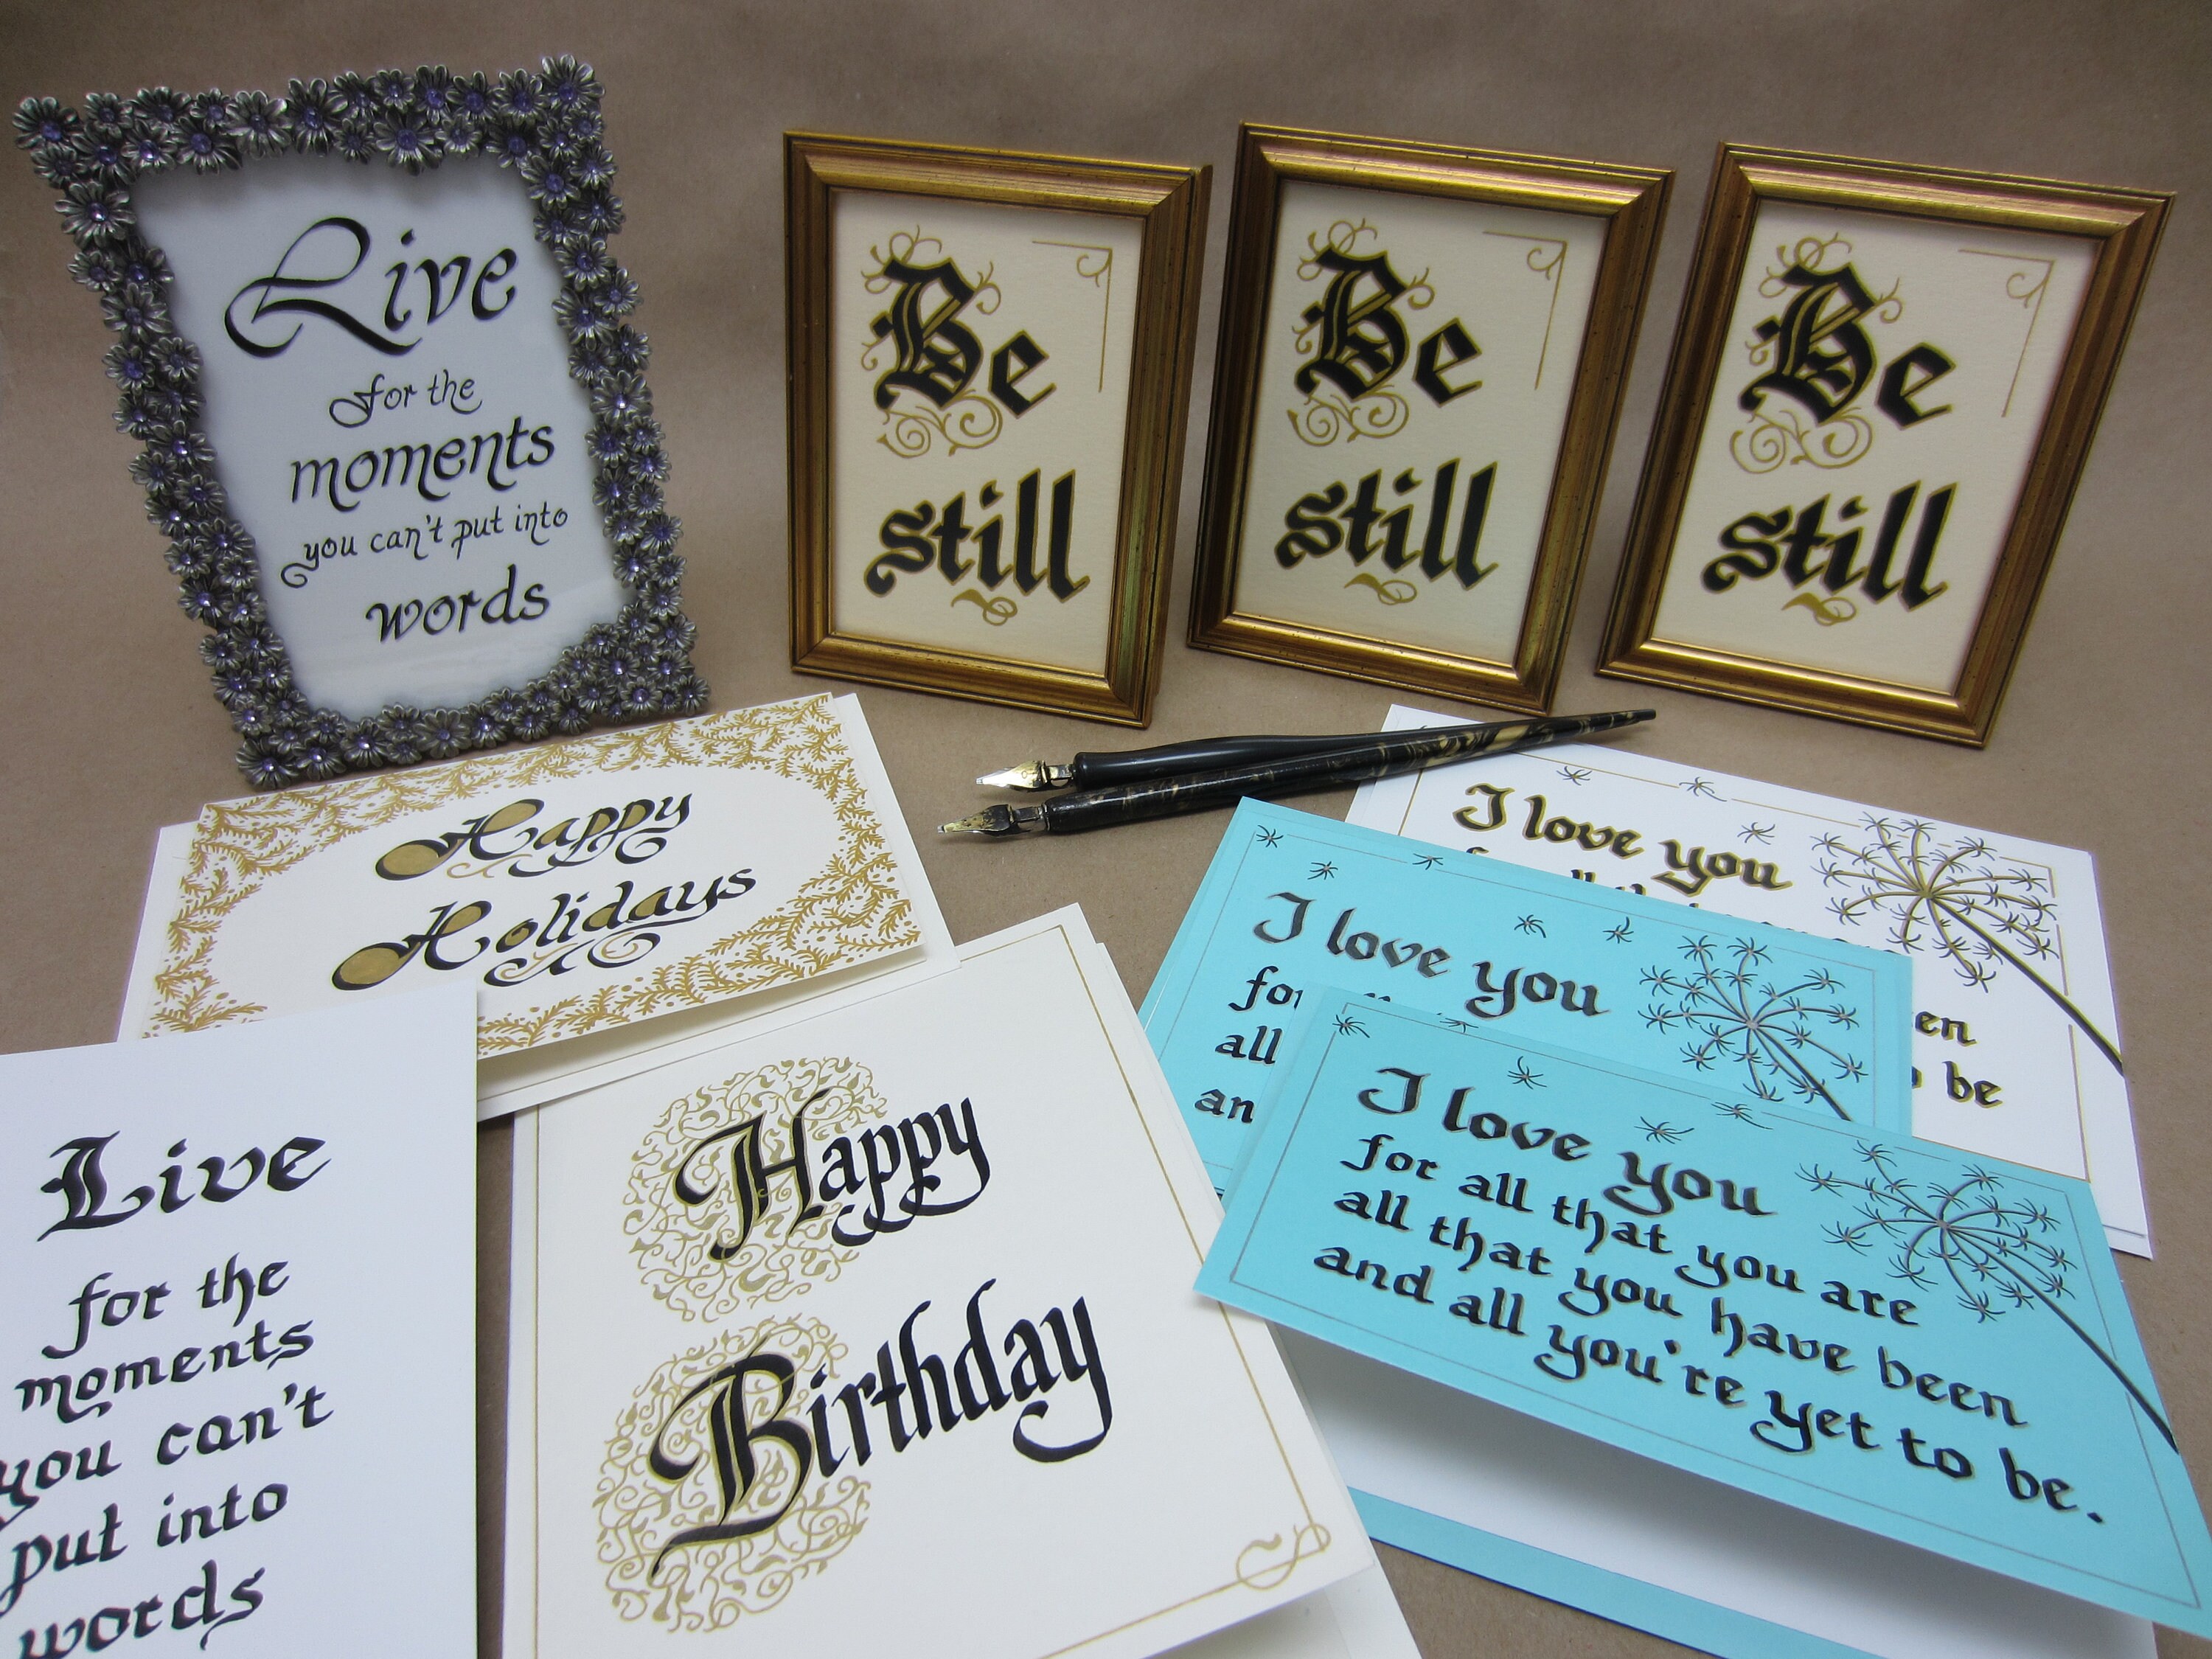 Live
for the
moments
you can't put into
words
Be
still
Be
still
Be
still
Happy
Holidays
I love you
en
be
I love you
for
all
an
I love you
for all that you are
all that you have been
and all you're yet to be.
Live
for the
moments
you can't
put into
words
Happy
Birthday